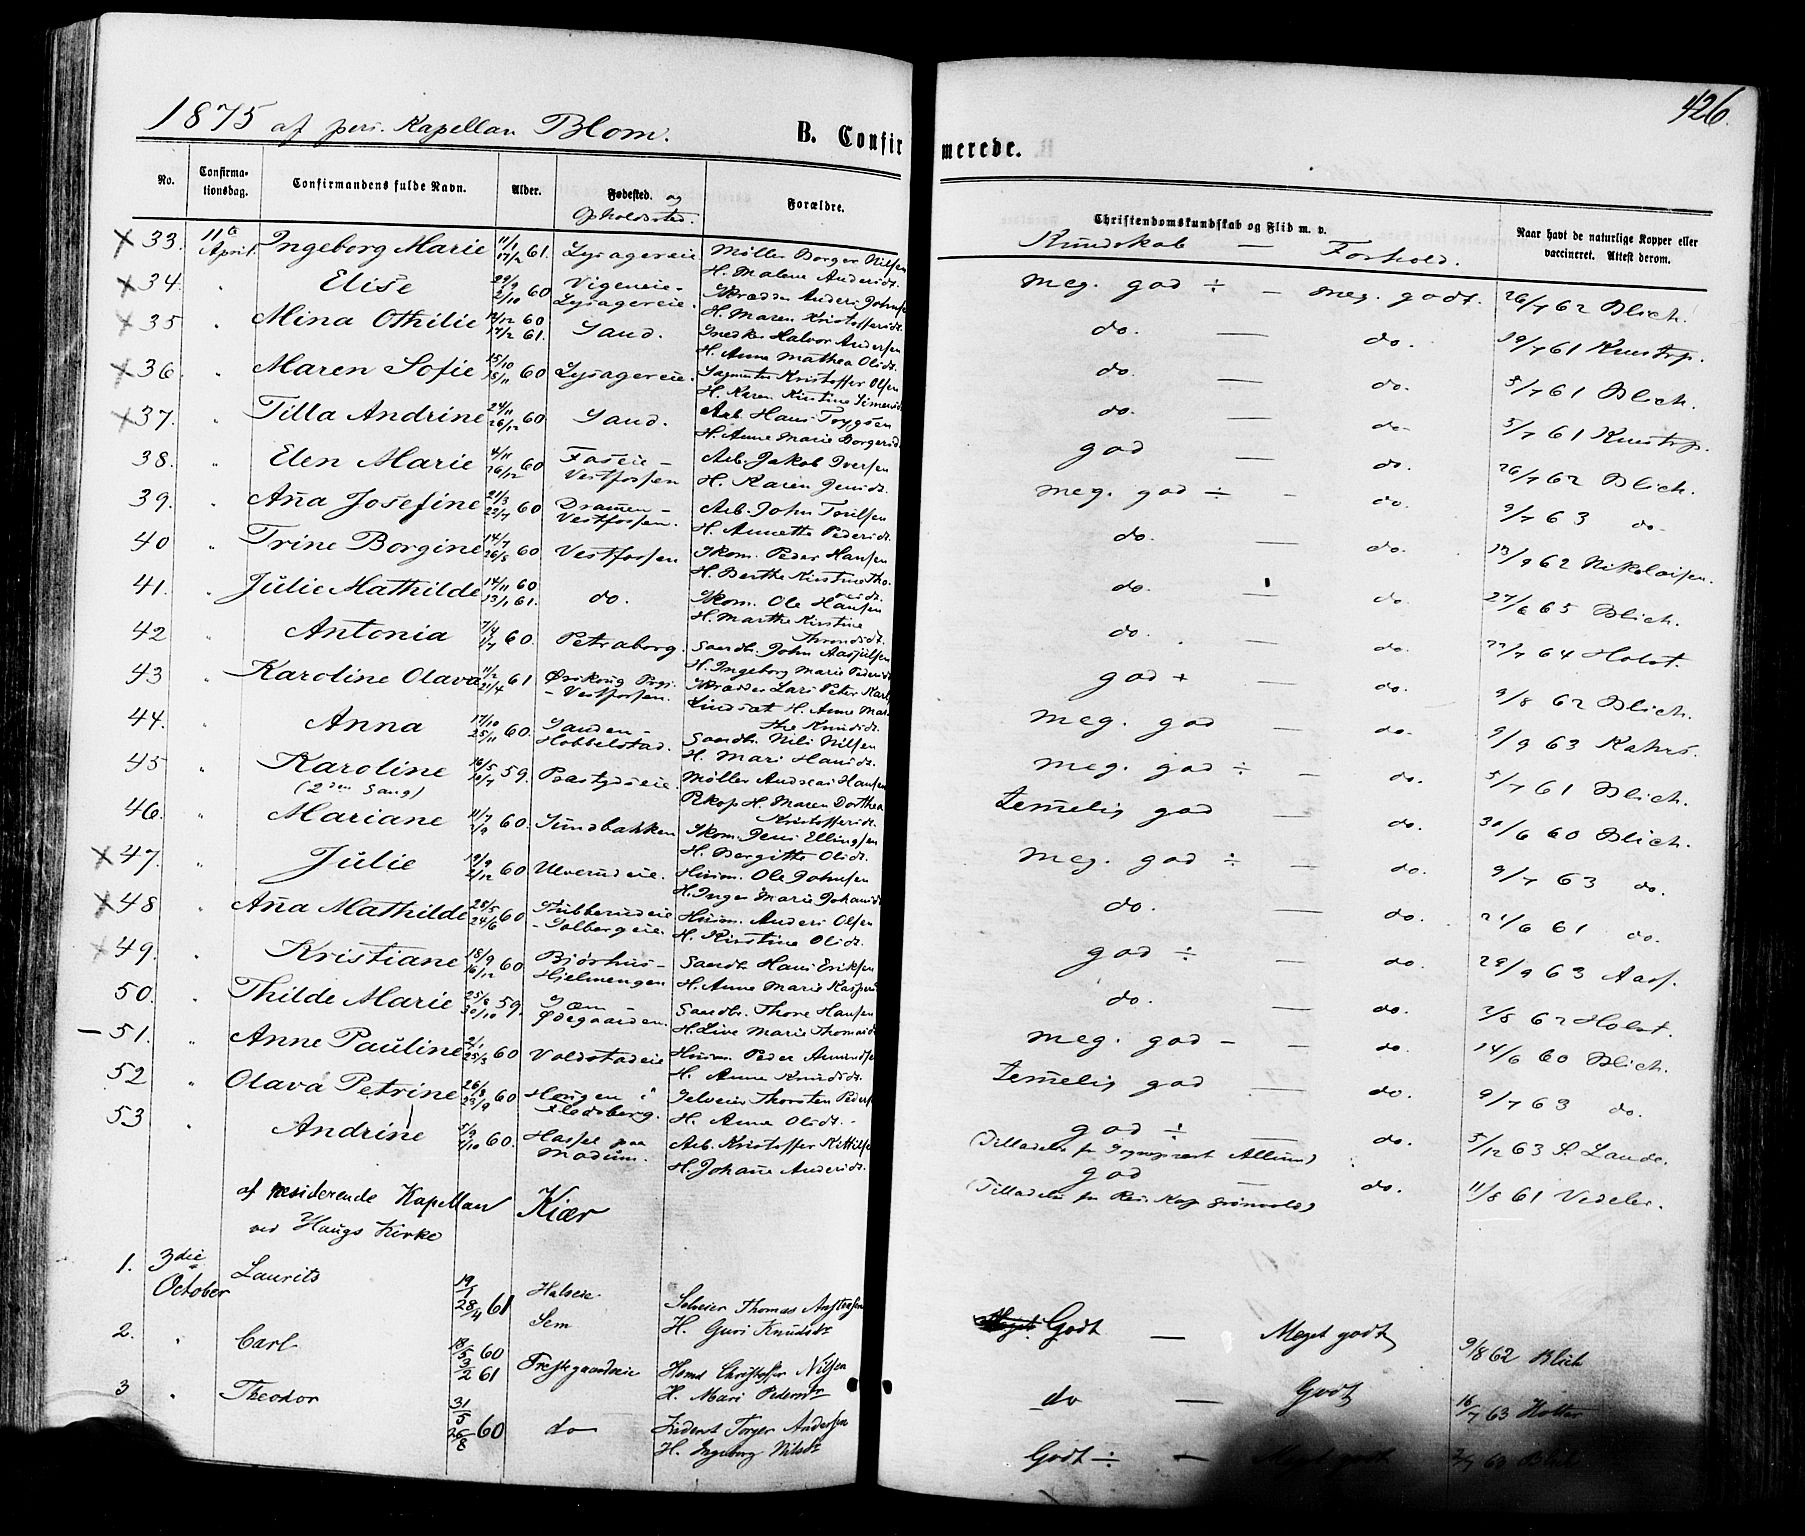 426.
1875 af pers. Kapellan Blom.
B. Confirmerede.
No. Confirmationsdag. Confirmandens fulde Navn. Alder. Fødested. og Opholdssted. Forældre. Christendomskundskab og Flid m. v. Naar havt de naturlige Kopper eller vaccineret. Attest derom.
Kundskab — Forhold.
33. 11te April. Ingeborg Marie 11/1 17/2 61. Lysagereie Møller Borger Nilsen H. Malene Andersdt. meg. god ÷ — meg. godt. 26/7 62 Blich.
34. " Elise 29/9 60 Vigeneie - Lysagereie. Skrædder Anders Johnsen H. Maren Kristoffersdt. do. — do. 19/7 61
35 " Mina Othilie 60 17/2 61. Sand. Snedker Halvor Andersen H. Anne Mathea Olsdt. do. — do. 5/7 61 Blich.
36. " Maren Sofie 15/10 15/11 60 Lysagereie. Sagmester Kristoffer Olsen H. Karen Kirstine do. — do. 5/7 61
37. " Tilla Andrine 24/11 26/12 60 Sand. Arb. Hans Trygsen H. Anne Marie Borgersd. god — do. 26/7 62 Blich.
38. " Elen Marie 4/11 26/12 60 Vestfossen Arb. Jakob Iversen H. Karen Jensdt. meg. god ÷ — do. 9/7 63 do.
39. " Ana Josefine 21/3 60 Dramen - Vestfossen. Arb. John H. Annette Pedersdt. do. — do. 13/9 62 Nikolaisen.
40 " Trine Borgine 14/7 26/8 60 Vestfossen Skom. Peder Hansen H. Berthe Kirstine Thoresdt. do. — do. 27/6 65 Blich.
41. " Julie Mathilde 14/11 60 13/1 61. do. Skom. Ole Hansen H. Marthe Kirstine Throndsdt. do. — do. 64 Holst.
42 " Antonia 60. Petraborg. Gaardb. John H. Ingeborg Marie Pedersdt god + — do. 9/8 62 Blich.
43 " Karoline Olava 11/2 21/4 61 Vestfossen. Skrædder Lars Peter H. Anne Marthe Knudsdt. meg. god — do. 9/9 63 Kahrs.
44. " Anna 17/10 25/11 60. Sanden - Hobbelstad. Gaardb. Nils Nilsen H. Mari Hansdt. meg. god ÷ — do. 5/7 61 Blich.
45 " Karoline (2den Gang) 16/5 10/7 59. Møller Andreas Hansen H. Maren Dorthea Kristoffersdt. temelig god — do. 30/6 60 Blich.
46. " Mariane 11/7 60. Sundbakken Skom. Jens Ellingsen H. Bergitte Olsdt. meg. god ÷ — do. 9/7 63 do.
47. " Julie 19/9 2/12 60 Ulverudeie. Husm. Ole Johnsen H. Inger Marie Johansdt do. — do. 21/6 61 do.
48 " Ana Mathilde 28/5 24/6 60 Stubberudeie - Solbergeie. Husm. Anders Olsen H. Kirstine Olsdt. god ÷ — do. 29/9 63 Aass.
49. " Kristiane 18/9 16/12 60 Bjørhus - Hjelmengen Gaardb. Hans Eriksen H. Anne Marie Kaspersd do. — do. 2/8 62 Holst.
50. " Thilde Marie 25/8 30/10 59. Sem Ødegaarden. Gaardb. Thore Hansen H. Live Marie Thomasdt meg. god — — do. 14/6 60 Blich.
51. " Anne Pauline 2/1 25/3 60 Voldstadeie Husm. Peder H. Anne Knudsdt. temelig god — do. 9/7 63 do.
52 " Olava Petrine 26/8 23/9 60 Haugen i Flesberg. Selveier Thorsten Peders H. Anne Olsdt. god ÷ — do. (Tilladelse fr Sogneprest) 5/12 63 Lande.
53 " Andrine 60. Hassel paa Modum. Arb. Kristoffer Kittilsen H. Johane Andersdt. god — do. (Tilladelse fr Res. Kap Grønvold) 11/8 61 Vedeler.
af residerende Kapellan Kiær
ved Haugs Kirke
1. 3die October Laurits 19/1 28/4 61 Halseie Sem Selveier Thomas H. Guri Knudsdt Godt — Meget godt 9/8 62 Blich
2. " Carl 18/5 60 3/2 61 Prestgaardseie Christoffer Nilsen H. Mari Pedersdtr do — Godt 16/7 63 Holter
3 " Theodor 31/5 26/8 60 do Torger Andersen H. Ingeborg Nilsdtr Godt ÷ — Meget godt Blich